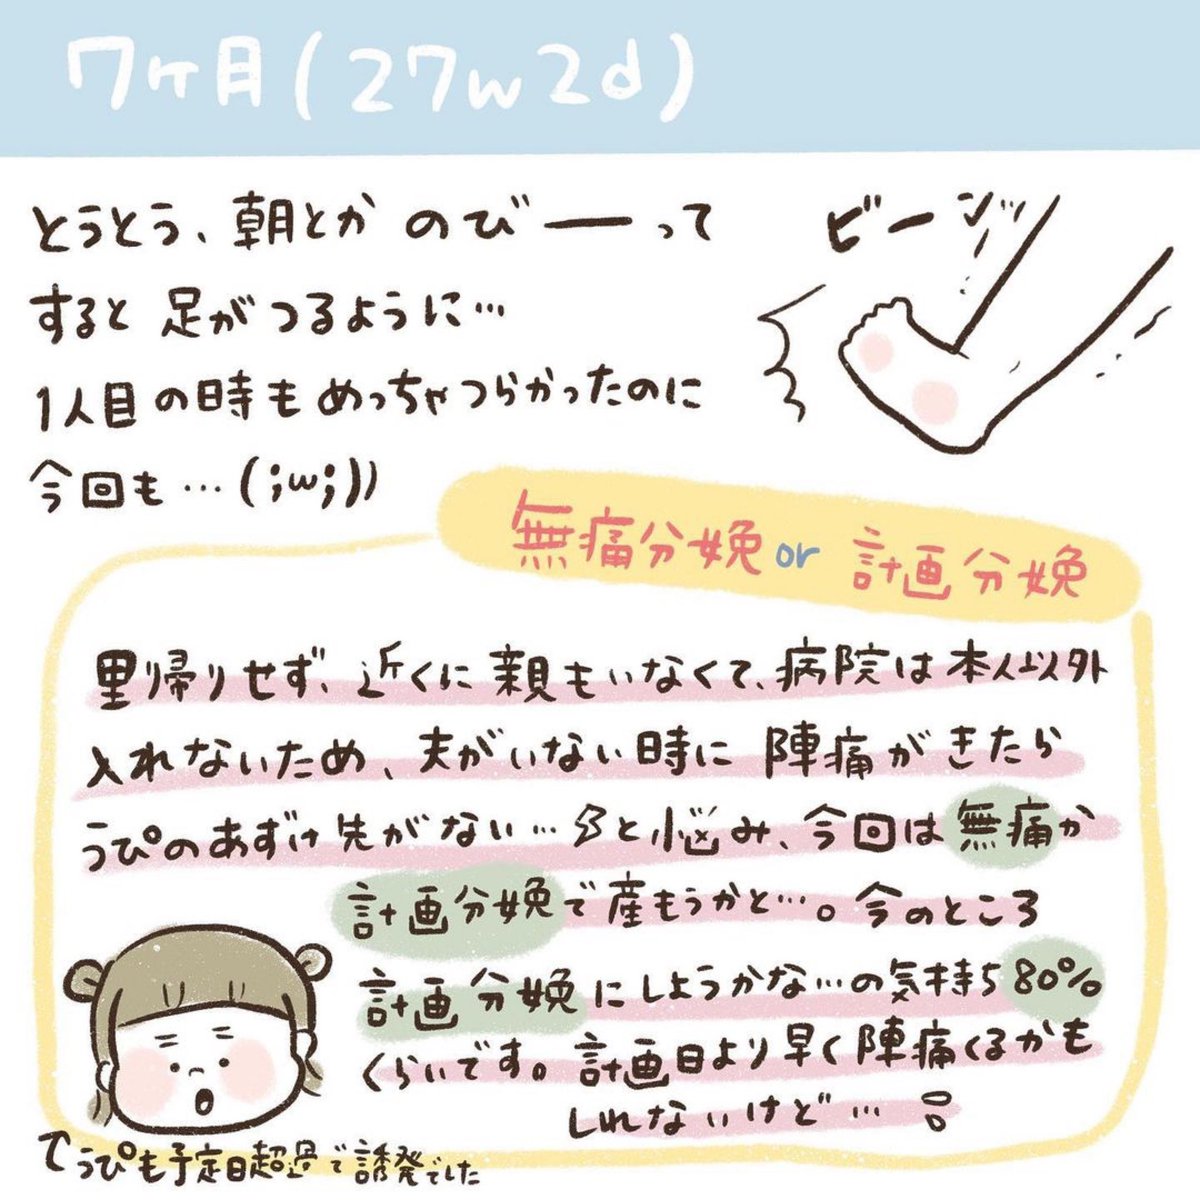 7ヶ月(27w2d)
とうとう、朝とか のびーーって
すると 足がつるように…
1人目の時もめっちゃつらかったのに
今回も…(;w;))
ビーンッ
無痛分娩or 計画分娩
里帰りせず、近くに親もいなくて、病院は本人以外
入れないため、夫がいない時に 陣痛がきたら
うぴのあずけ先がない…と悩み、今回は無痛か
計画分娩で産もうかと…。今のところ
計画分娩にしようかな…の気持ち80%
くらいです。計画日より早く陣痛くるかも
しれないけど…
うぴも予定日超過で誘発でした